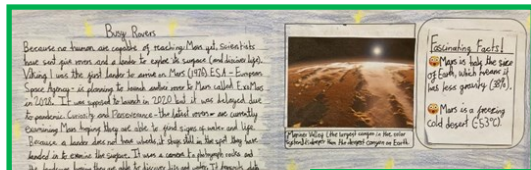 Busy Rovers
Because no human are capable of reaching Mars yet, scientists
have sent six rovers and a lander to explore its surface (and discover life).
Viking 1 was the first lander to arrive on Mars (1976). ESA - European
Space Agency - is planning to launch another rover to Mars called ExoMars
in 2028. It was supposed to launch in 2020 but it was delayed due
to pandemic. Curiosity and Perseverance - the latest rovers - are currently
examining Mars hoping they are able to find signs of water and life.
Because a lander does not have wheels, it stays still in the spot they have
landed in to examine the surface. It uses a camera to photograph rocks and
Mariner Valley (the largest canyon in the solar
system) is deeper than the deepest canyon on Earth.
Fascinating Facts!
Mars is half the size
of Earth, which means it
has less gravity (38%).
Mars is a freezing
cold desert (-53°C).